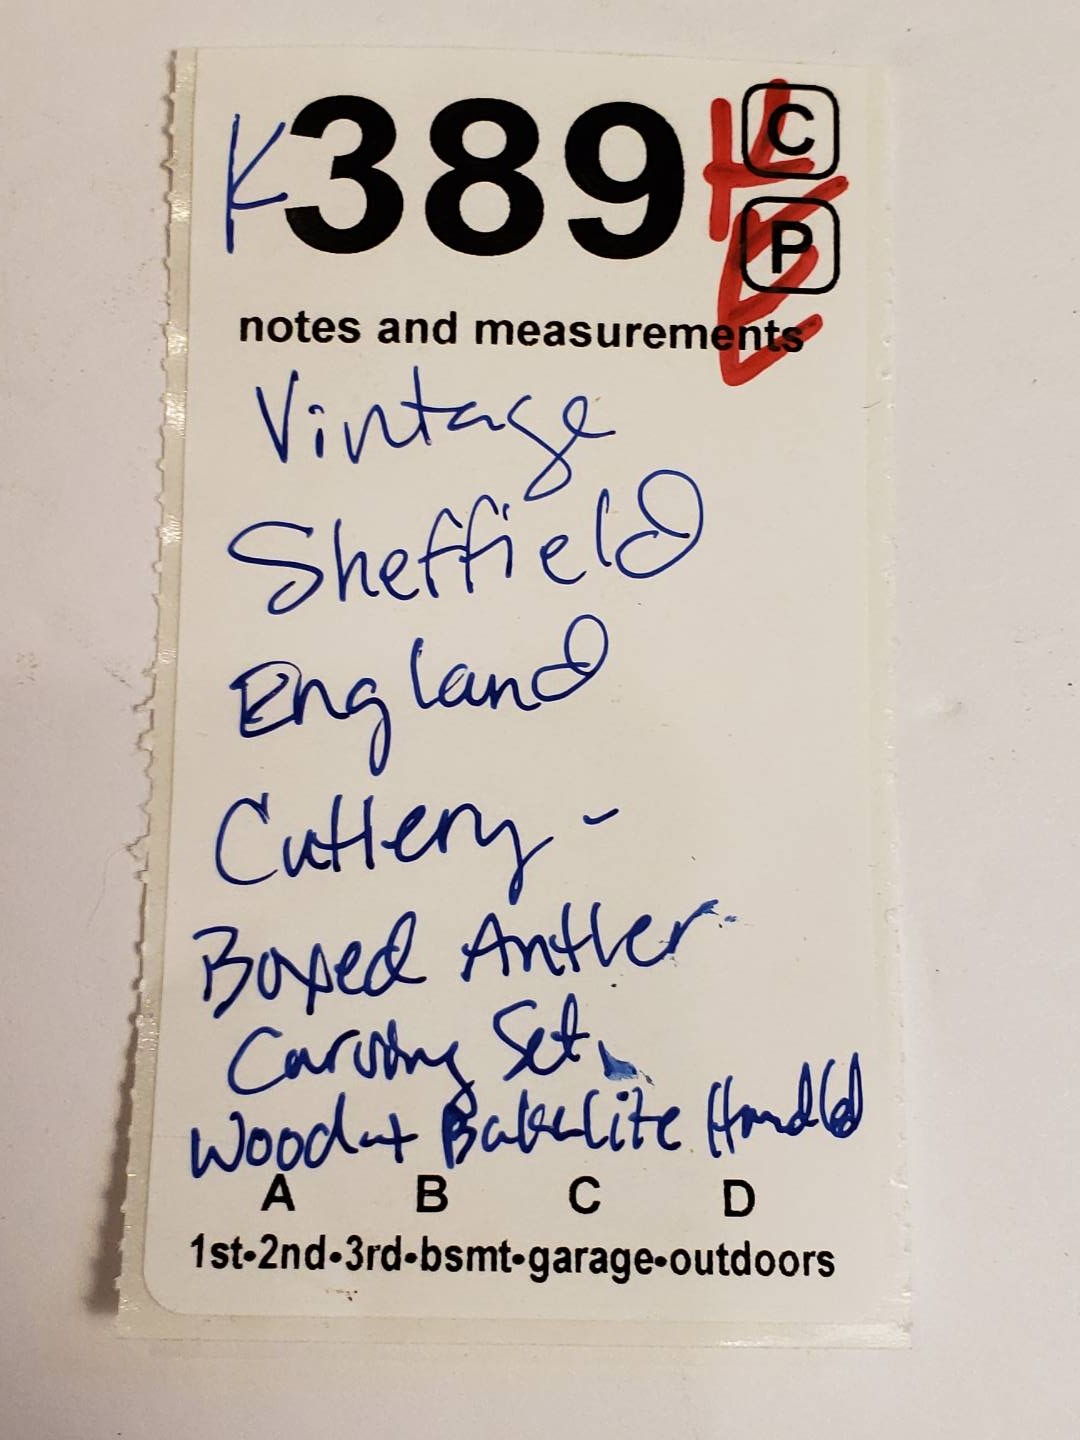 K389 C
P
notes and measurements
Vintage
Sheffield
England
Cutlery -
Boxed Antler
Carving Set,
Wood + Bakelite Handled
A B C D
1st•2nd•3rd•bsmt•garage•outdoors